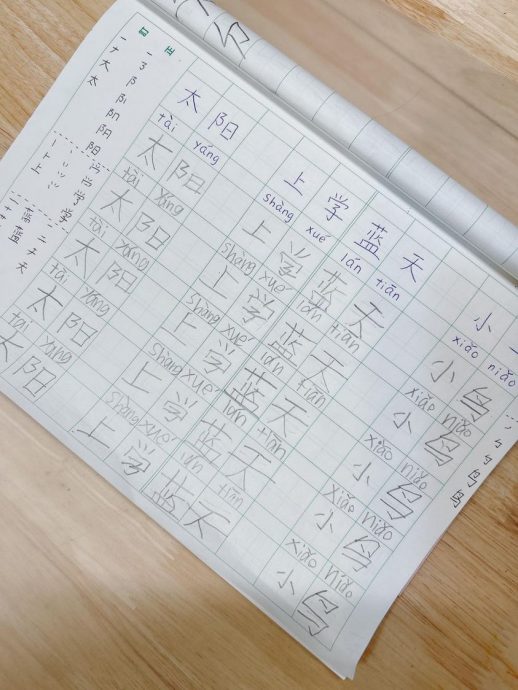 分
订正
一ナ大太
阳
丨卜上
学
蓝
一二天
太阳 上学 蓝天 小
tài yáng shàng xué lán tiān xiǎo niǎo
太阳 上学 蓝天 小鸟
tài yáng shàng xué lán tiān xiǎo niǎo
太阳 上学 蓝天 小鸟
tài yáng shàng xué lán tiān xiǎo niǎo
太阳 上学 蓝天 小鸟
tài yáng shàng xué lán tiān xiǎo niǎo
太阳 上学 蓝天 小鸟
tài yáng shàng xué lán tiān xiǎo niǎo
太阳 上学 蓝天 小鸟